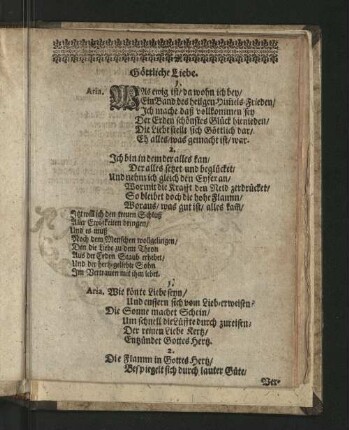 Göttliche Liebe.
1.
Aria. WAs ewig ist/ da wohn ich bey/
Ein Band des heilgen Frieden/
Ich mache daß vollkommen sey
Der Erden schönstes Glück hienieden/
Die Liebe stellt sich Göttlich dar/
Eh alles/ was gemacht ist/ war.
2.
Ich bin in dem der alles kan/
Der alles setzet und beglücket/
Und nehm ich gleich den Eyfer an/
Wormit die Krafft den Neid zerdrücket/
So bleibet doch die hohe Flamm/
Woraus/ was gut ist/ alles kam/
Itzt will ich den treuen Schluß
Aller Ewigkeiten bringen/
Und es muß
Noch dem Menschen wollgelingen/
Den die Liebe zu dem Thron
Aus der Erden Staub erhebet/
Und der hertz-geliebte Sohn
Im Vertrauen mit ihm lebet.
1.
Aria. Wie könte Liebe seyn/
Und eussern sich vom Lieb-erweisen/
Die Sonne machet Schein/
Um schnell die Lüffte durch zureisen/
Der reinen Liebe Kertz/
Entzündet Gottes Hertz.
2.
Die Flamm in Gottes Hertz/
Bespiegelt sich durch lauter Güte/
Ver-